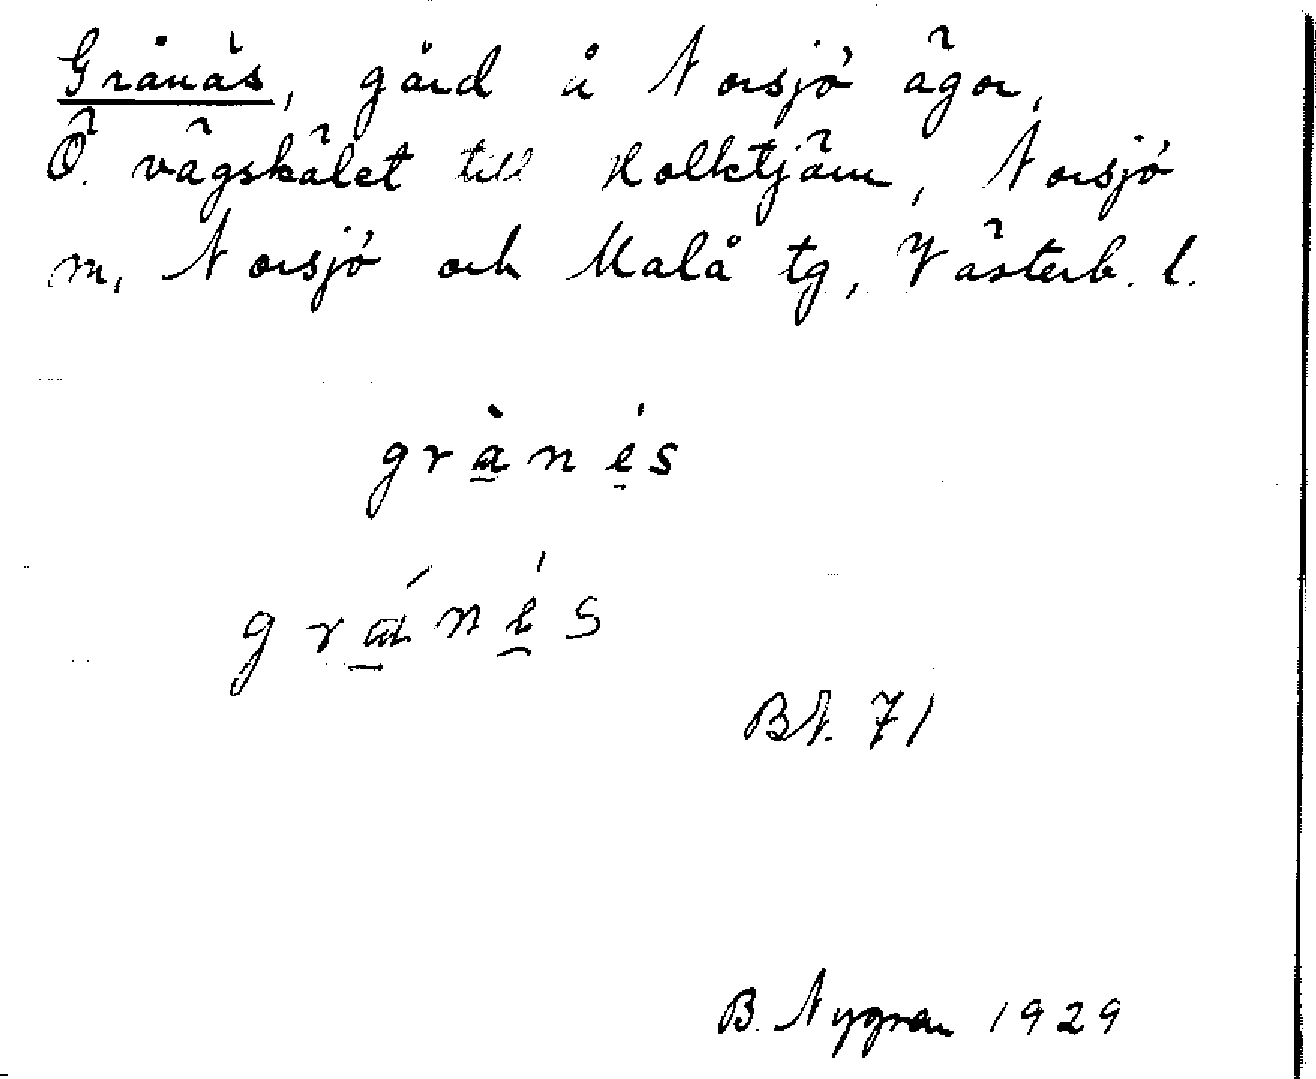 Grånäs, gård å Norsjö ägor,
Ö. vägskälet till Holktjärn, Norsjö
m, Norsjö och Malå tg, Västerb. l.
grànés
gránés
BN. 71
B. Nygren 1929